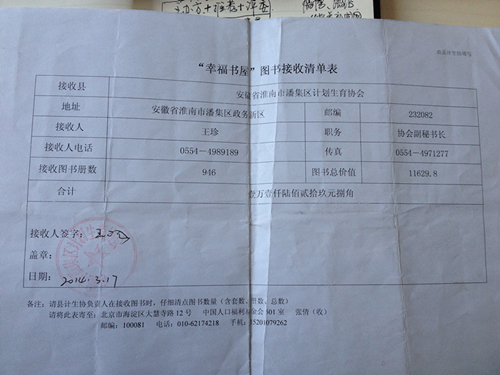 "幸福书屋"图书接收清单表
接收县 安徽省淮南市潘集区计划生育协会
地址 安徽省淮南市潘集区政务新区 邮编 232082
接收人 王珍 职务 协会副秘书长
接收人电话 0554—4989189 传真 0554—4971277
接收图书册数 946 图书总价值 11629.8
合计 壹万壹仟陆佰贰拾玖元捌角
接收人签字：王珍
盖章：
日期：2014.3.17
备注：请县计生协负责人在接收图书时，仔细清点图书数量（含套数、册数、总数）
请将此表寄至：北京市海淀区大慧寺路12号 中国人口福利基金会501室 张倩（收）
邮编：100081 电话：010-62174218 手机：15201079262